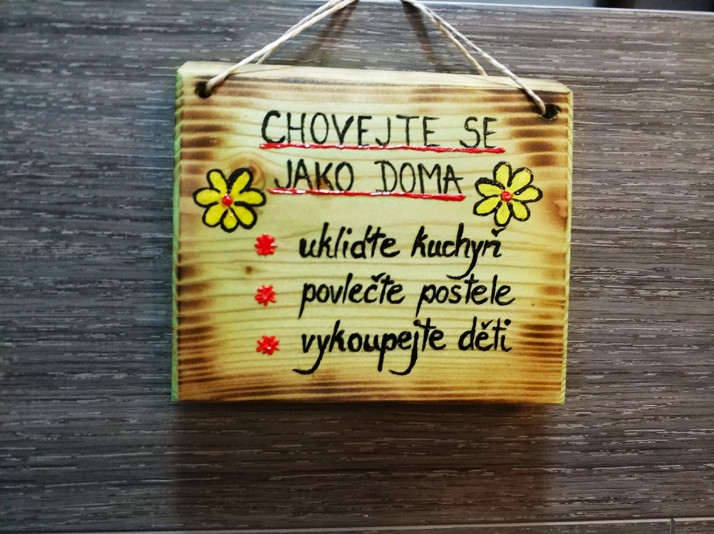 CHOVEJTE SE
JAKO DOMA
ukliďte kuchyň
povlečte postele
vykoupejte děti